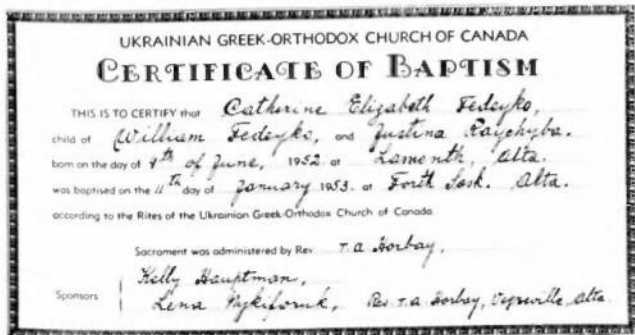 UKRAINIAN GREEK-ORTHODOX CHURCH OF CANADA
CERTIFICATE OF BAPTISM
THIS IS TO CERTIFY that Catherine Elizabeth Fedeyko,
child of William Fedeyko, and Justina Raychyba.
born on the day of 9th of June, 1952 at Lamonth, Alta.
was baptised on the 11th day of January 1953. at Forth Sask. Alta.
according to the Rites of the Ukrainian Greek-Orthodox Church of Canada.
Sacrament was administered by Rev. T.A Horbay,
Kelly Hauptman,
Sponsors
Lena Nykiforuk, Rev. T.A. Horbay, Vegreville, Alta.